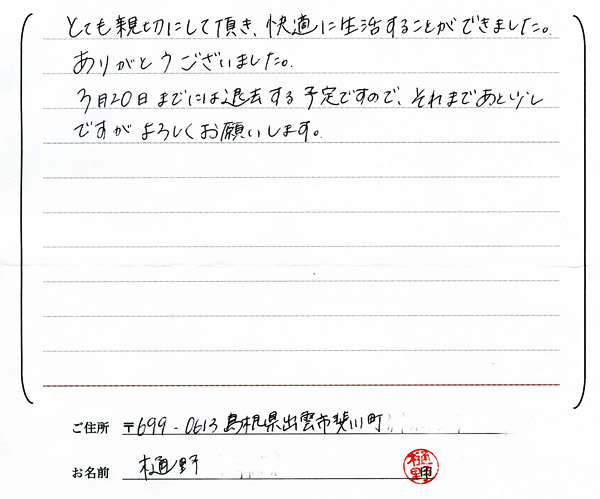 とても親切にして頂き、快適に生活することができました。
ありがとうございました。
3月20日までには退去する予定ですので、それまであと少し
ですがよろしくお願いします。
ご住所 〒699-0613 島根県出雲市斐川町
お名前 樋野
樋野